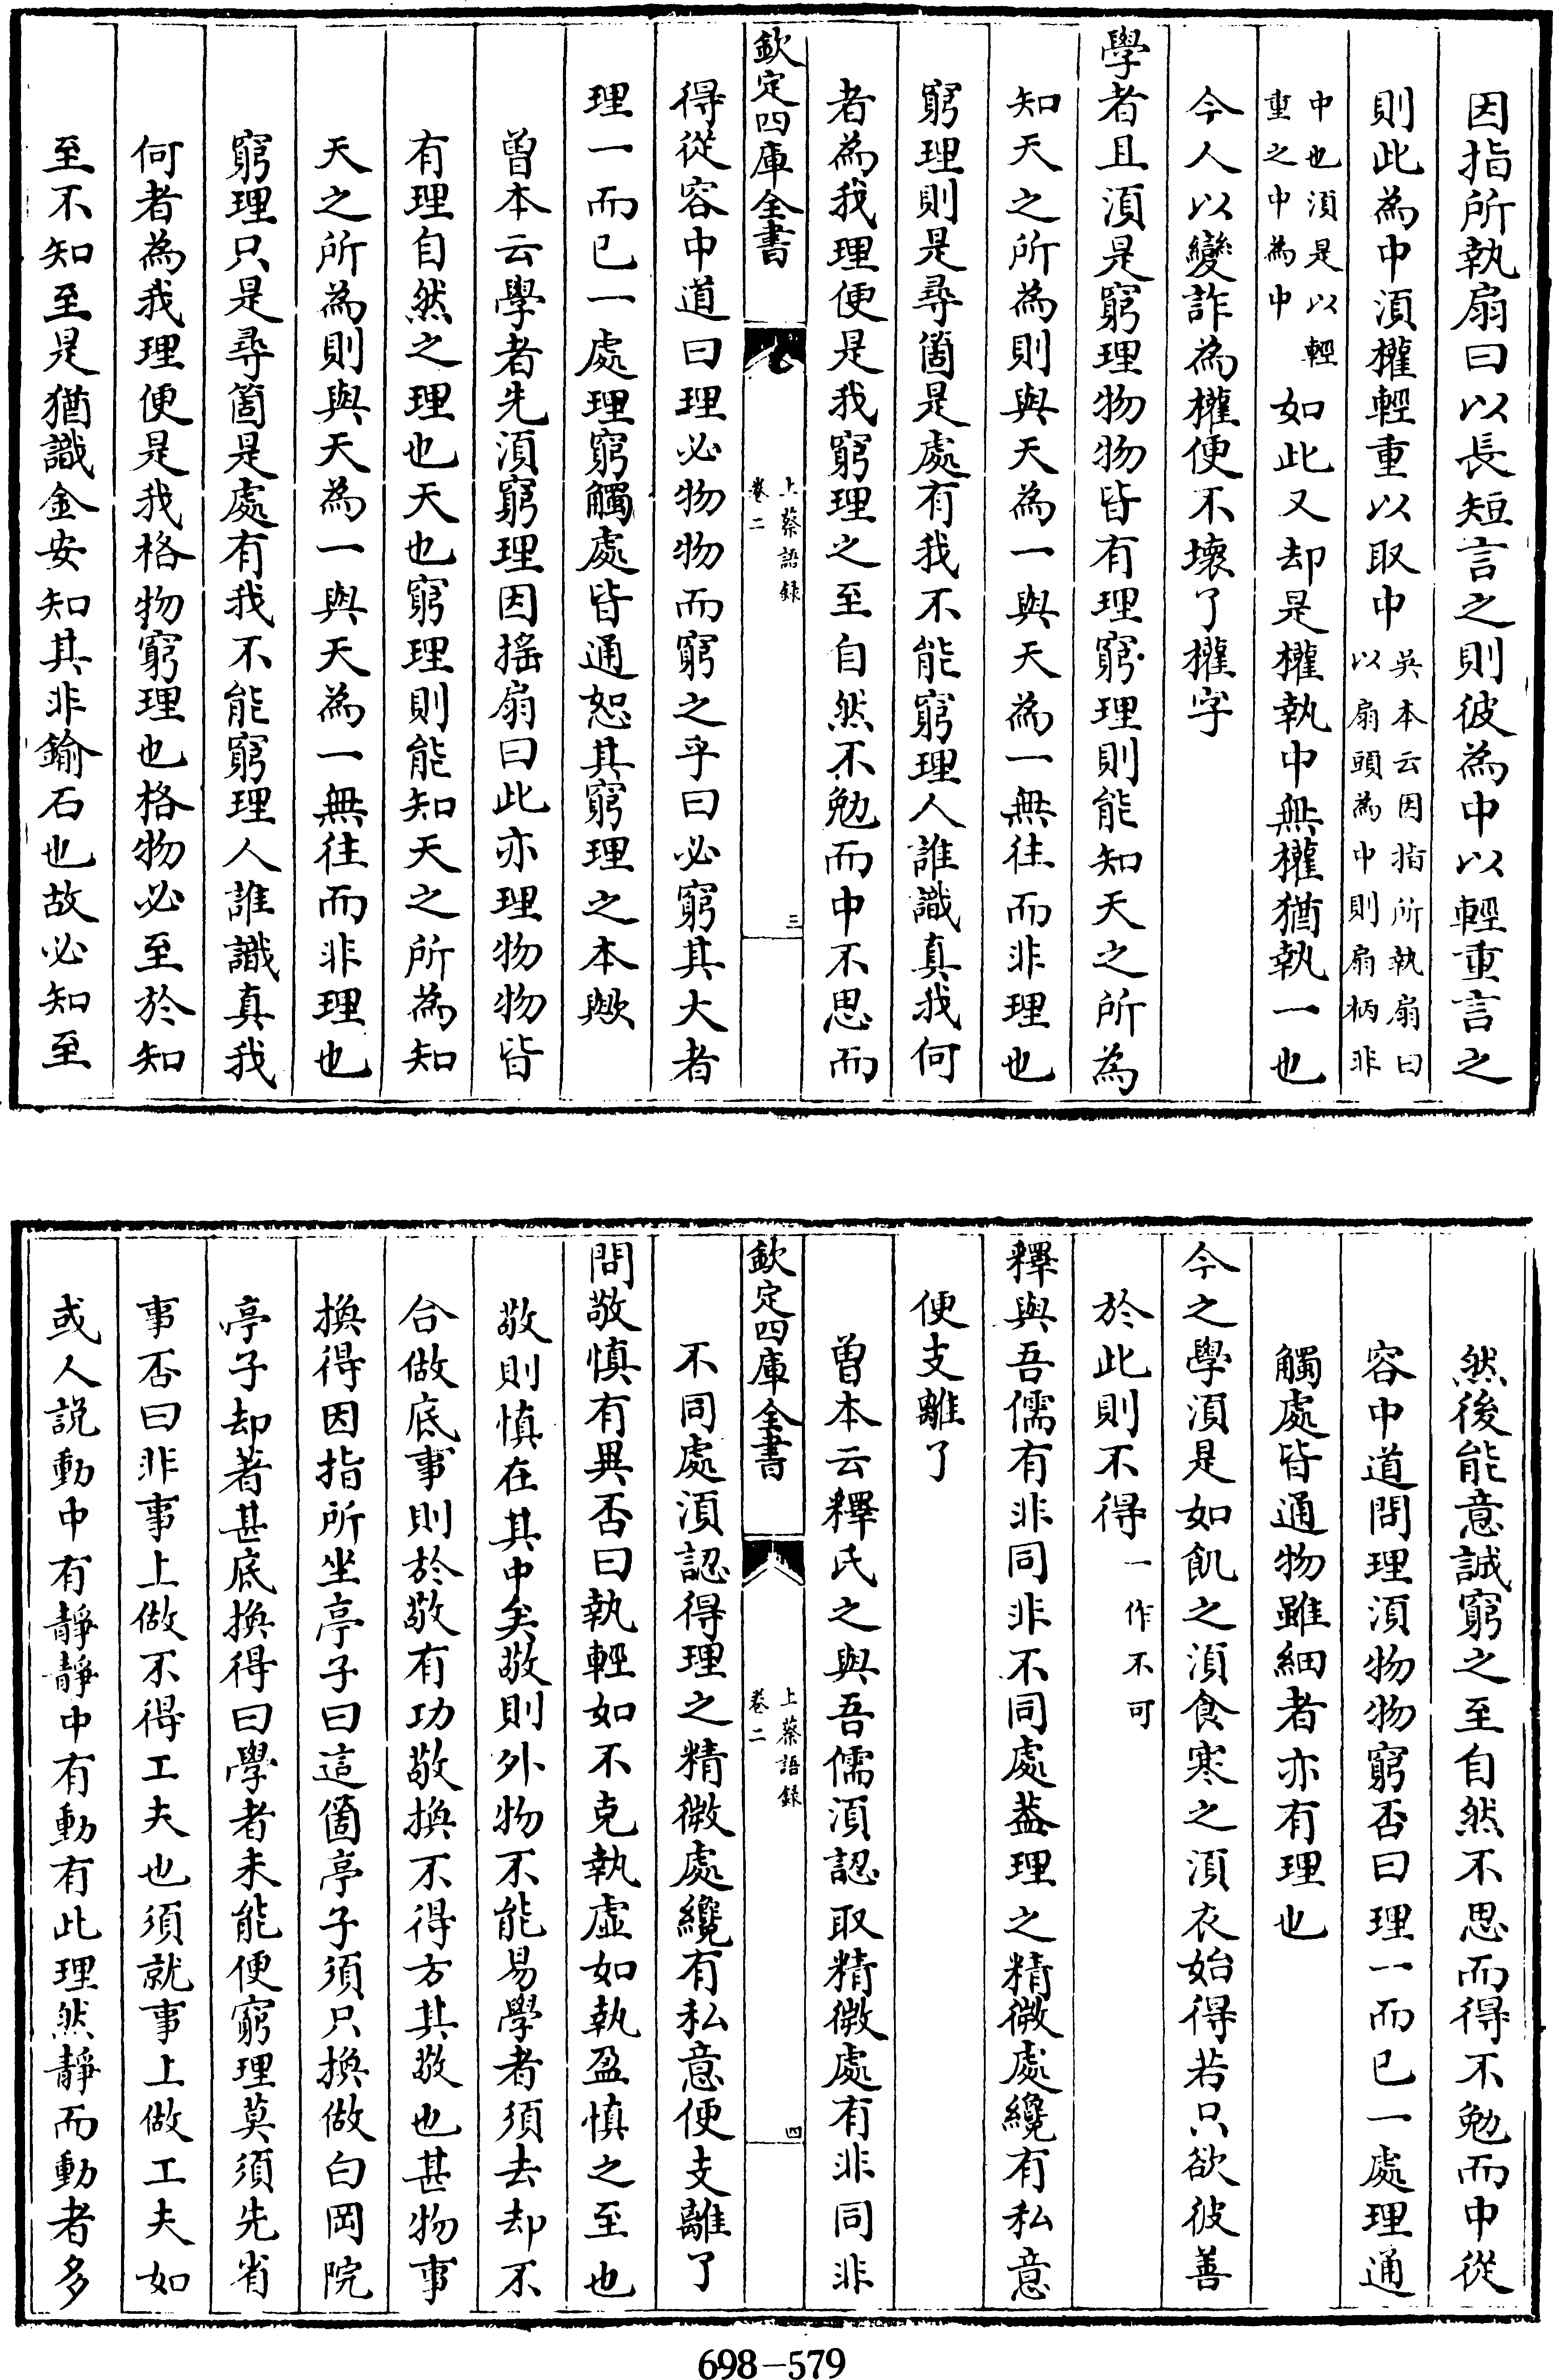 因指所執扇曰以長短言之則彼為中以輕重言之
則此為中湏權輕重以取中吳本云因指所執扇曰以扇頭為中則扇柄非
中也湏是以輕重之中為中如此又却是權執中無權猶執一也
今人以變詐為權便不壞了權字
學者且湏是窮理物物皆有理窮理則能知天之所為
知天之所為則與天為一與天為一無往而非理也
窮理則是尋箇是處有我不能窮理人誰識真我何
者為我理便是我窮理之至自然不勉而中不思而
欽定四庫全書
上蔡語録
卷二
三
得從容中道曰理必物物而窮之乎曰必窮其大者
理一而已一處理窮觸處皆通恕其窮理之本歟
曾本云學者先湏窮理因揺扇曰此亦理物物皆
有理自然之理也天也窮理則能知天之所為知
天之所為則與天為一與天為一無往而非理也
窮理只是尋箇是處有我不能窮理人誰識真我
何者為我理便是我格物窮理也格物必至於知
至不知至是猶識金安知其非鍮石也故必知至
然後能意誠窮之至自然不思而得不勉而中從
容中道問理湏物物窮否曰理一而已一處理通
觸處皆通物雖細者亦有理也
今之學湏是如飢之湏食寒之湏衣始得若只欲彼善
於此則不得一作不可
釋與吾儒有非同非不同處葢理之精微處纔有私意
便支離了
曾本云釋氏之與吾儒湏認取精微處有非同非
欽定四庫全書
上蔡語録
卷二
四
不同處湏認得理之精微處纔有私意便支離了
問敬慎有異否曰執輕如不克執虛如執盈慎之至也
敬則慎在其中矣敬則外物不能易學者須去却不
合做底事則於敬有功敬換不得方其敬也甚物事
換得因指所坐亭子曰這箇亭子須只換做白岡院
亭子却著甚底換得曰學者未能便窮理莫須先省
事否曰非事上做不得工夫也須就事上做工夫如
或人説動中有靜靜中有動有此理然靜而動者多
698-579